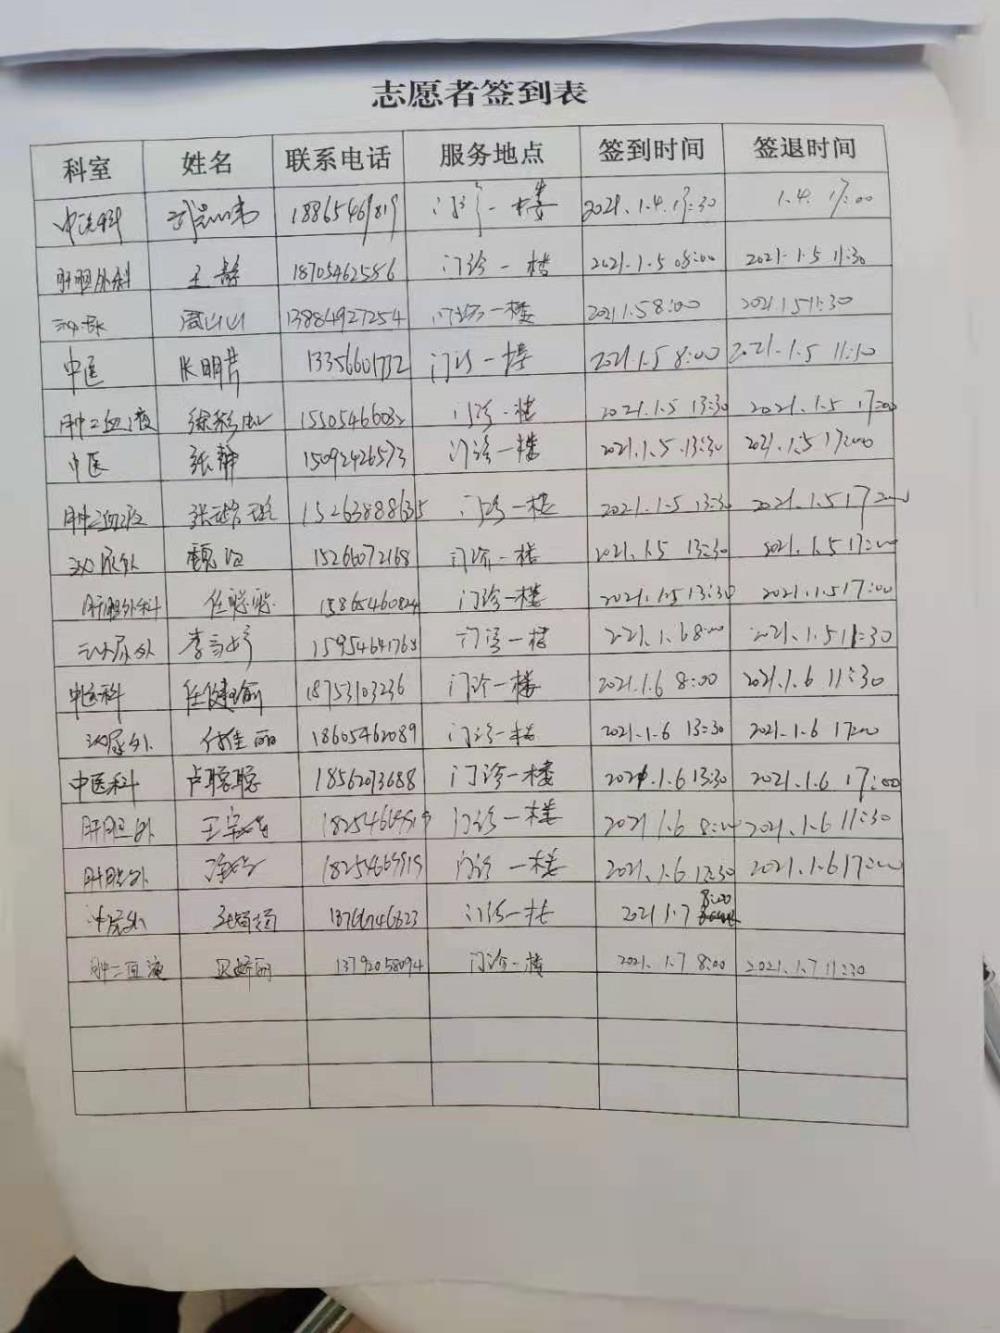 志愿者签到表
科室 姓名 联系电话 服务地点 签到时间 签退时间
门诊一楼 2021.1.4. 13:30 1.4. 17:00
肝胆外科 王静 18705462586 门诊一楼 2021.1.5 08:00 2021.1.5 11:30
周山山 13884927254 门诊一楼 2021.1.5 8:00 2021.1.5 11:30
中医 13356601732 门诊一楼 2021.1.5 8:00 2021.1.5 11:30
肿二血液 15505466032 门诊一楼 2021.1.5 13:30 2021.1.5 17:00
中医 张静 15092426573 门诊一楼 2021.1.5.13:30 2021.1.5 17:00
肿二血液 门诊一楼 2021.1.5 13:30 2021.1.5 17:00
泌尿外 15266072168 门诊一楼 2021.1.5 13:30 2021.1.5 17:00
肝胆外科 任聪聪 15865460824 门诊一楼 2021.1.5 13:30 2021.1.5 17:00
泌尿外 15954641765 门诊一楼 2021.1.6 8:00 2021.1.5 11:30
中医科 18753103236 门诊一楼 2021.1.6 8:00 2021.1.6 11:30
泌尿外 18605462089 门诊一楼 2021.1.6 13:30 2021.1.6 17:00
中医科 卢聪聪 18562073688 门诊一楼 2021.1.6 13:30 2021.1.6 17:00
肝胆外 门诊一楼 2021 1.6 8:00 2021.1.6 11:30
肝胆外 18254669919 门诊一楼 2021.1.6 13:30 2021.1.6 17:00
泌尿外 门诊一楼 2021 1.7 8:00
肿二血液 13792058094 门诊一楼 2021.1.7 8:00 2021.1.7 11:30